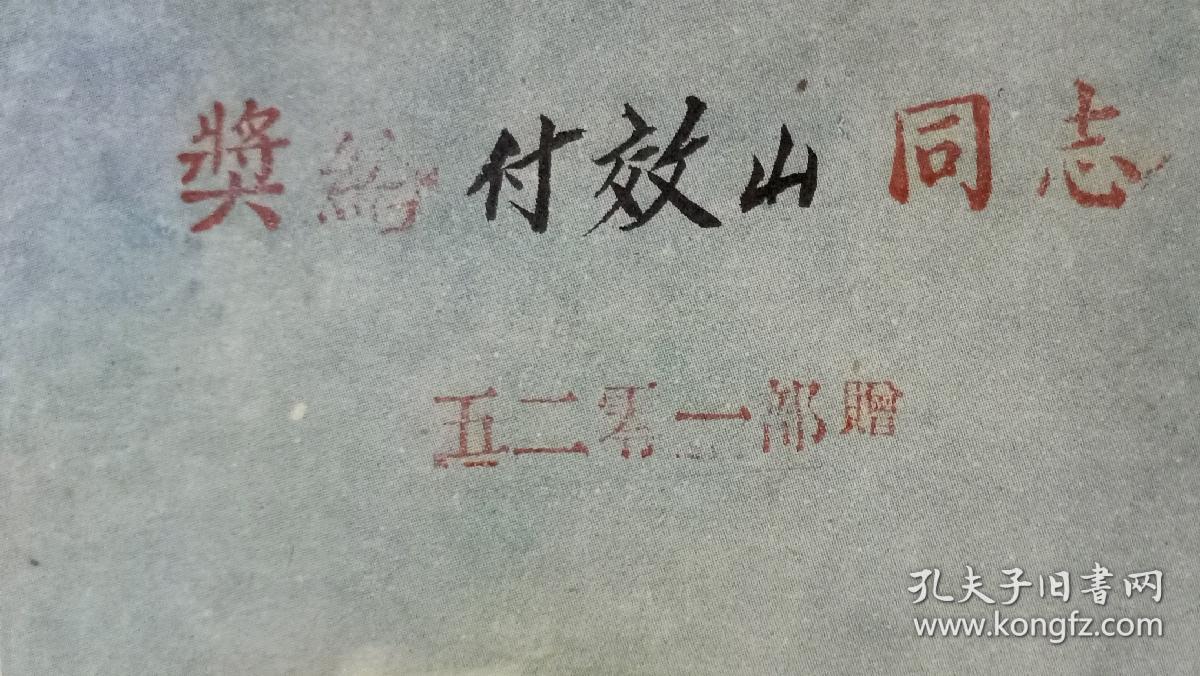 奬給付效山同志
五二零一部贈
孔夫子旧書网
www.kongfz.com